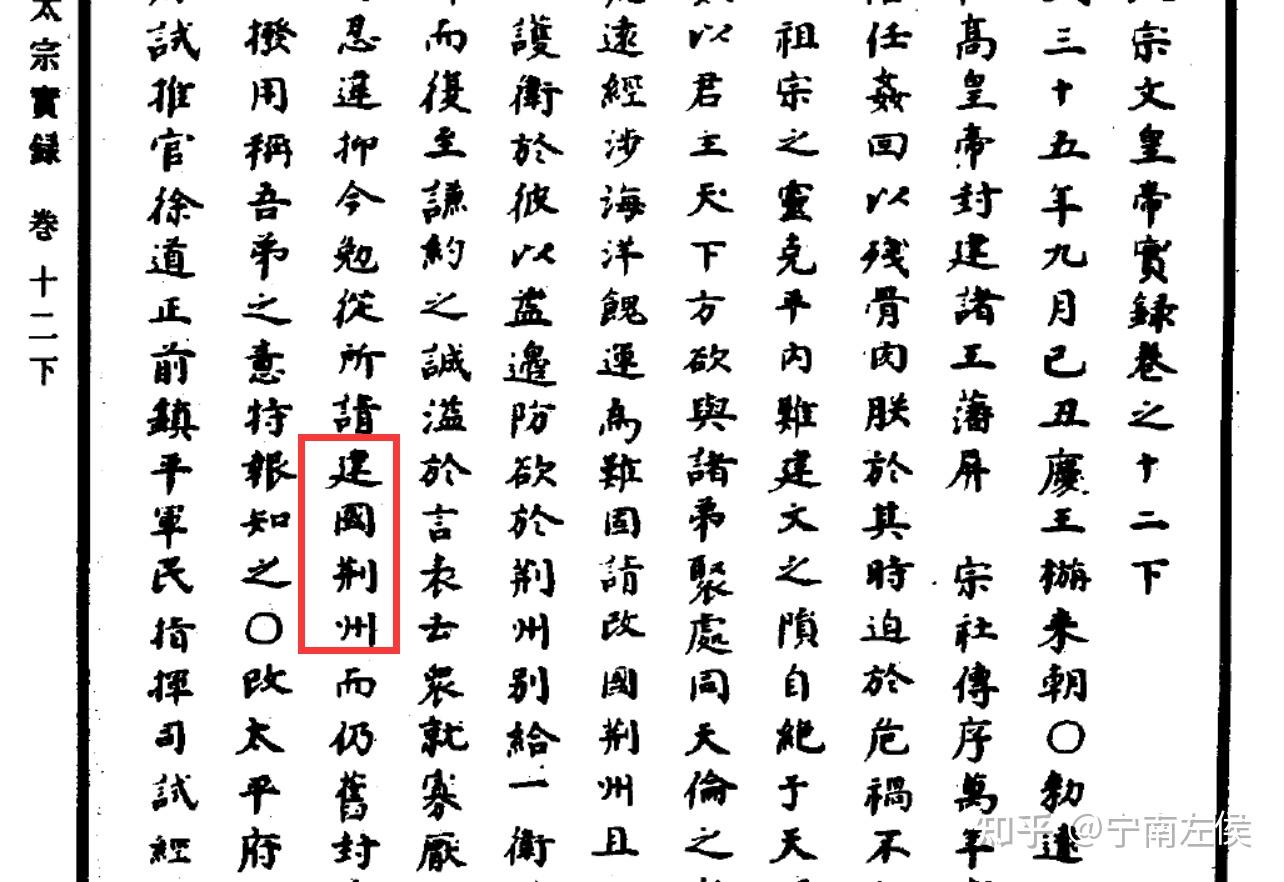 宗文皇帝實録卷之十二下
三十五年九月己丑慶王㮵来朝〇勑遼
高皇帝封建諸王藩屏 宗社傳序萬年
任姦回以殘骨肉朕於其時迫於危禍不
祖宗之靈克平内難建文之隕自絕于天
以君主天下方欲與諸弟聚處同天倫之
遠經涉海洋餽運為難固請改國荆州且
護衛於彼以益邊防欲於荆州别給一衛
而復至謙約之誠溢於言表去衆就寡厭
忍遲抑今勉從所請建國荆州而仍舊封
撥用稱吾弟之意特報知之〇改太平府
試推官徐道正前鎮平軍民指揮司試經
太宗實録 卷十二下
知乎 @宁南左侯